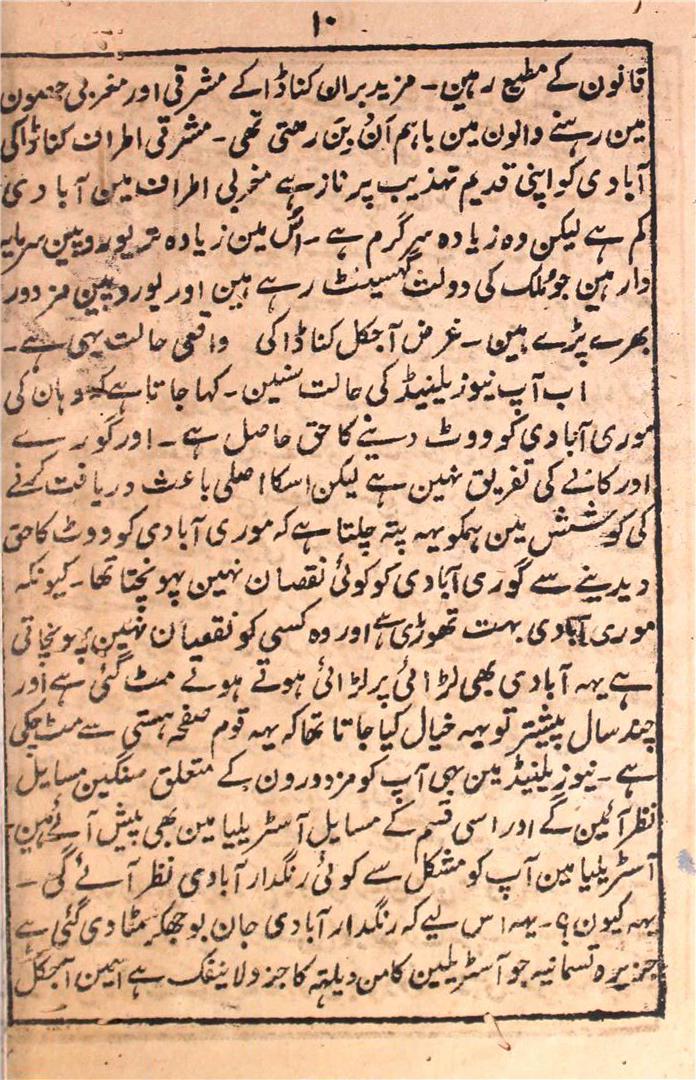 ۱۰
قانون کے مطیع رہین ۔ مزید بران کناڈا کے مشرقی اور مغربی حصون
مین رہنے والون مین باہم اَن بَن رہتی تھی ۔ مشرقی اطراف کناڈا کی
آبادی کو اپنی قدیم تہذیب پر ناز ہے مغربی اطراف مین آبادی
کم ہے لیکن وہ زیادہ سرگرم ہے ۔ اس مین زیادہ تر یوروپین سرمایہ
دار ہین جو ملک کی دولت گھسیٹ رہے ہین اور یوروپین مزدور
بھرے پڑے ہین ۔ غرض آجکل کناڈا کی واقعی حالت یہی ہے ۔
اب آپ نیوزیلینڈ کی حالت سنین ۔ کہا جاتا ہے کہ وہان کی
موری آبادی کو ووٹ دینے کا حق حاصل ہے ۔ اور گورے
اور کالے کی تفریق نہین ہے لیکن اسکا اصلی باعث دریافت کرنے
کی کوشش مین ہمکو یہہ پتہ چلتا ہے کہ موری آبادی کو ووٹ کا حق
دیدینے سے گوری آبادی کو کوئی نقصان نہین پہونچتا تھا ۔ کیونکہ
موری آبادی بہت تھوڑی ہے اور وہ کسی کو نقصان نہین پہونچاتی
ہے یہہ آبادی بھی لڑائی پر لڑائی ہوتے ہوتے مٹ گئی ہے اور
چند سال پیشتر تو یہہ خیال کیا جاتا تھا کہ یہہ قوم صفحہ ہستی سے مٹ چکی
ہے ۔ نیوزیلینڈ مین بھی آپ کو مزدورون کے متعلق سنگین مسایل
نظر آئین گے اور اسی قسم کے مسایل آسٹریلیا مین بھی پیش آئے ہین ۔
آسٹریلیا مین آپ کو مشکل سے کوئی رنگدار آبادی نظر آئے گی ۔
یہہ کیون ؟ ۔ یہہ اس لیے کہ رنگدار آبادی جان بوجھکر مٹا دی گئی ہے
جزیرہ تسمانیہ جو آسٹریلین کامن ویلتھ کا جزو لاینفک ہے اسمین آجکل